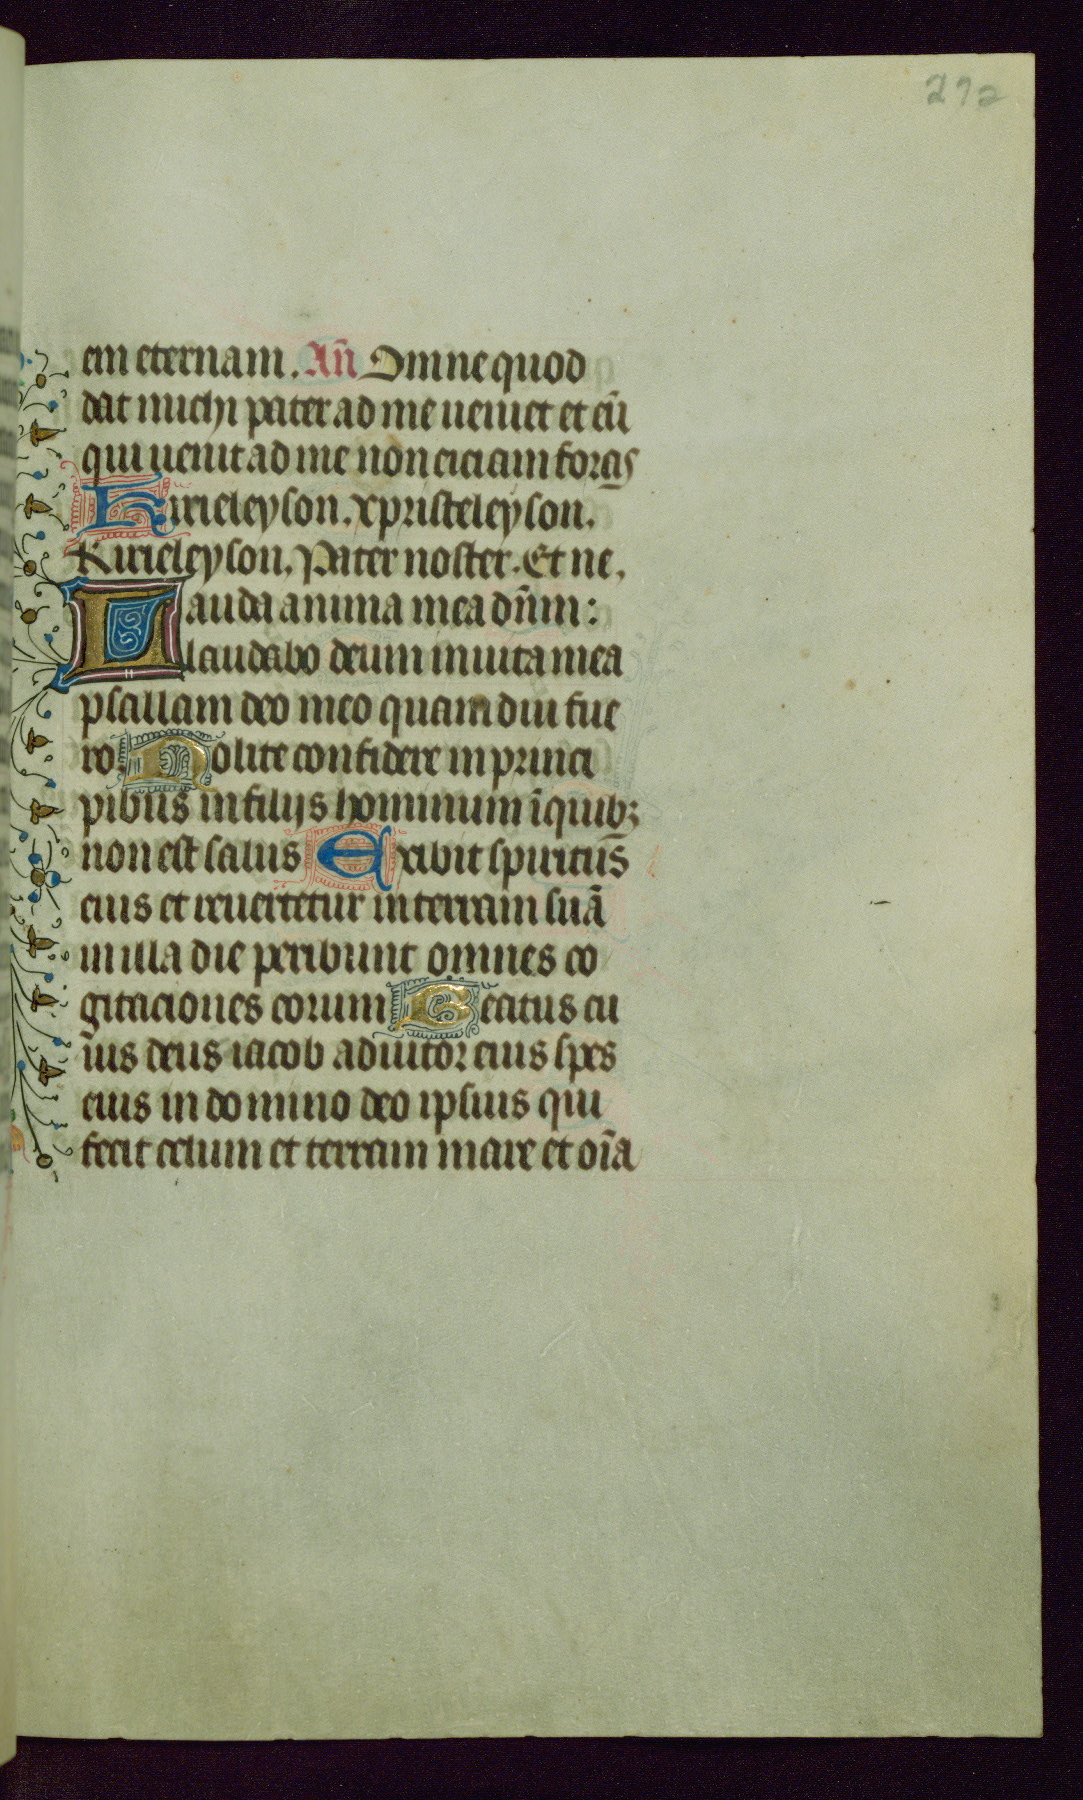 272
em eternam. Añ Omne quod
dat michi pater ad me ueniet et eū
qui uenit ad me non eiciam foras
Kirieleyson. xpristeleyson.
Kirieleyson. Pater noster. Et ne.
Lauda anima mea dn̄m:
laudabo deum in uita mea
psallam deo meo quamdiu fue
ro Nolite confidere in princi
pibus in filijs hominum ī quib;
non est salus Exibit spiritus̄
eius et reuertetur in terram suā
in illa die peribunt omnes co
gitaciones eorum Beatus cu
ius deus iacob adiutor eius spes
eius in domino deo ipsius qui
fecit celum et terram mare et oīa